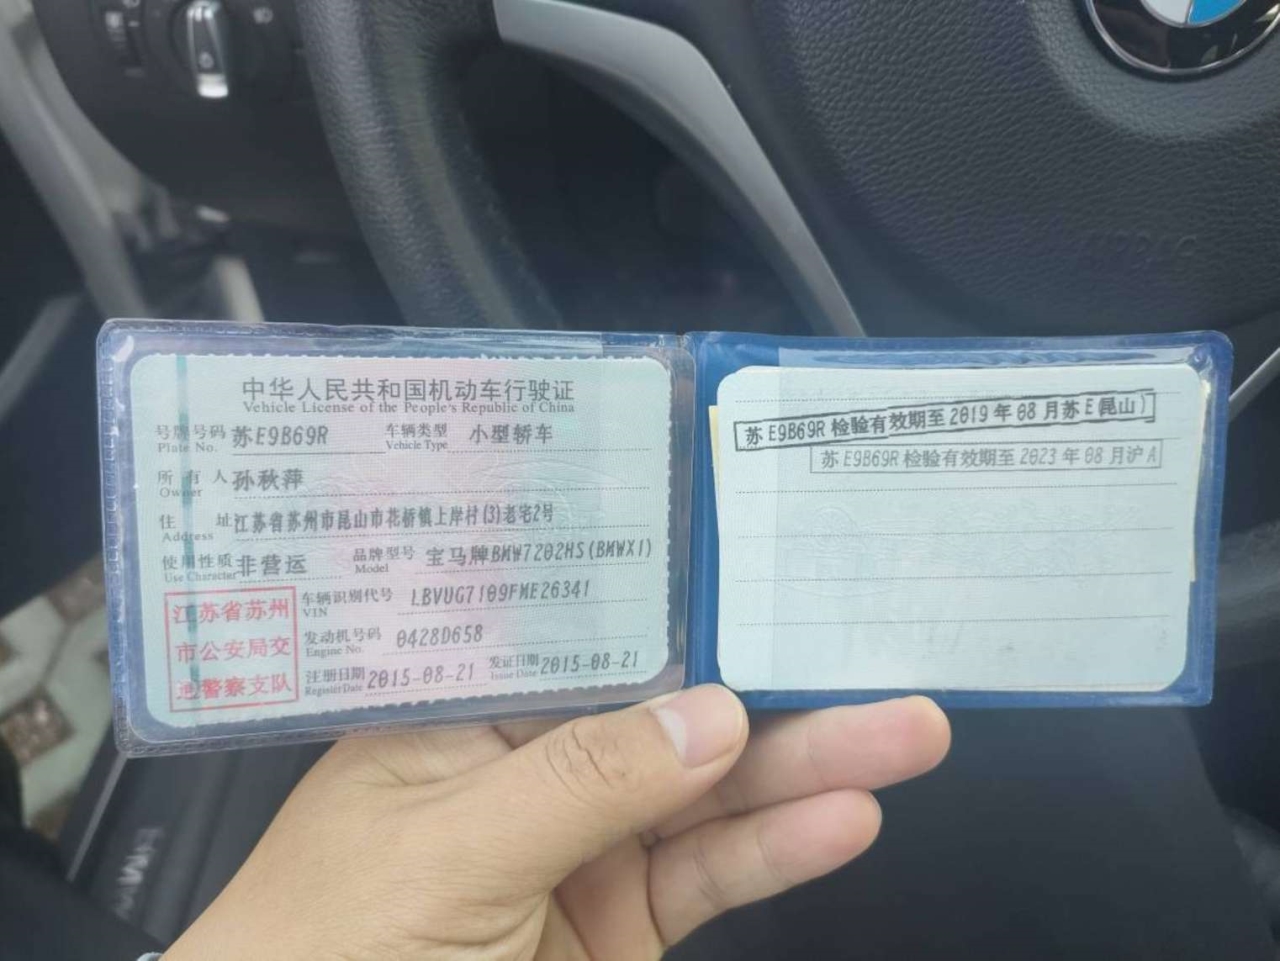 中华人民共和国机动车行驶证
Vehicle License of the People's Republic of China
号牌号码 苏E9B69R 车辆类型 小型轿车
Plate No. Vehicle Type
所有人 孙秋萍
Owner
住址 江苏省苏州市昆山市花桥镇上岸村(3)老宅2号
Address
使用性质 非营运 品牌型号 宝马牌BMW7202HS(BMWX1)
Use Character Model
江苏省苏州
市公安局交
通警察支队
车辆识别代号 LBVUG7109FME26341
VIN
发动机号码 0428D658
Engine No.
注册日期 2015-08-21 发证日期 2015-08-21
Register Date Issue Date
苏E9B69R 检验有效期至 2019 年 08 月苏 E(昆山)
苏E9B69R 检验有效期至 2023 年 08 月沪A